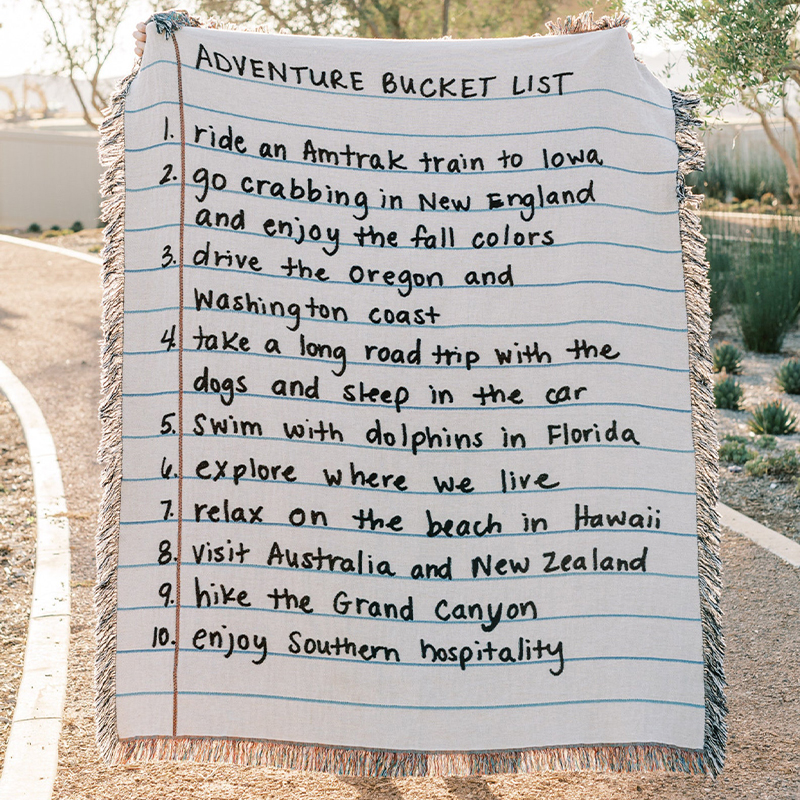 ADVENTURE BUCKET LIST
1. ride an Amtrak train to Iowa
2. go crabbing in New England
and enjoy the fall colors
3. drive the Oregon and
Washington coast
4. take a long road trip with the
dogs and sleep in the car
5. Swim with dolphins in Florida
6. explore where we live
7. relax on the beach in Hawaii
8. visit Australia and New Zealand
9. hike the Grand Canyon
10. enjoy Southern hospitality